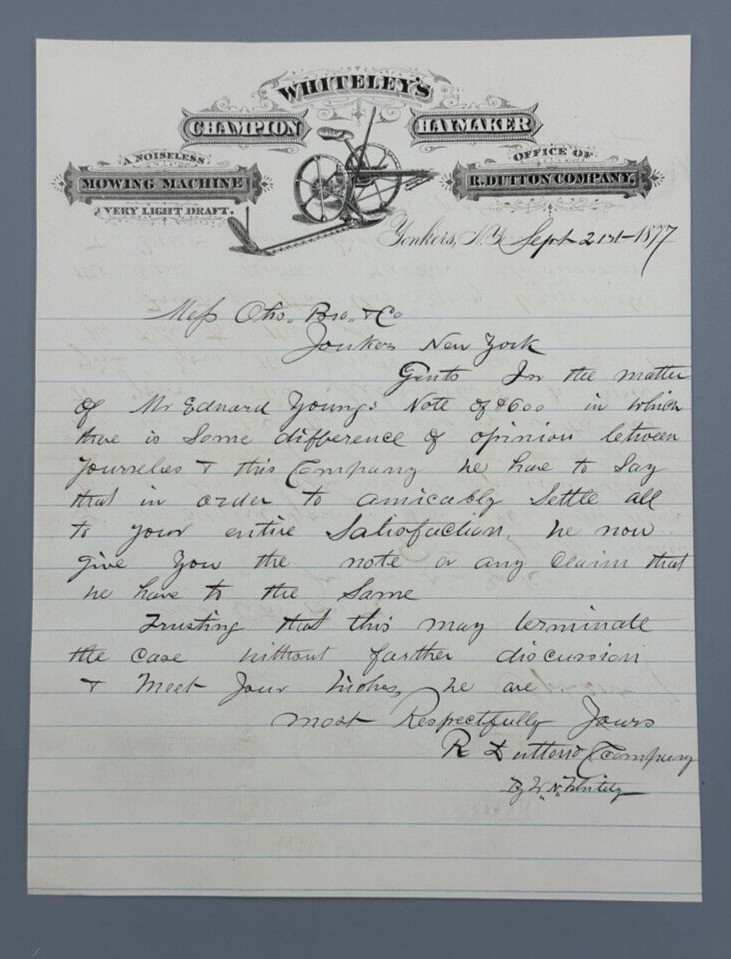 WHITELEY'S
CHAMPION HAYMAKER
A NOISELESS
MOWING MACHINE
VERY LIGHT DRAFT.
OFFICE OF
R. DUTTON COMPANY,
Yonkers, N.Y. Sept 21st 1877
Mess Otis. Bro. & Co
Yonkers New York
Gents In the matter
of Mr Edward Youngs Note of $600 in which
there is Some difference of opinion between
Yourselves & this Company We have to Say
that in order to amicably Settle all
to your entire Satisfaction, We now
give You the note or any Claim that
We have to the Same
Trusting that this may terminate
the Case without farther discussion
& Meet Your Wishes, We are
Most Respectfully Yours
R Dutton Company
By W. N. Whiteley